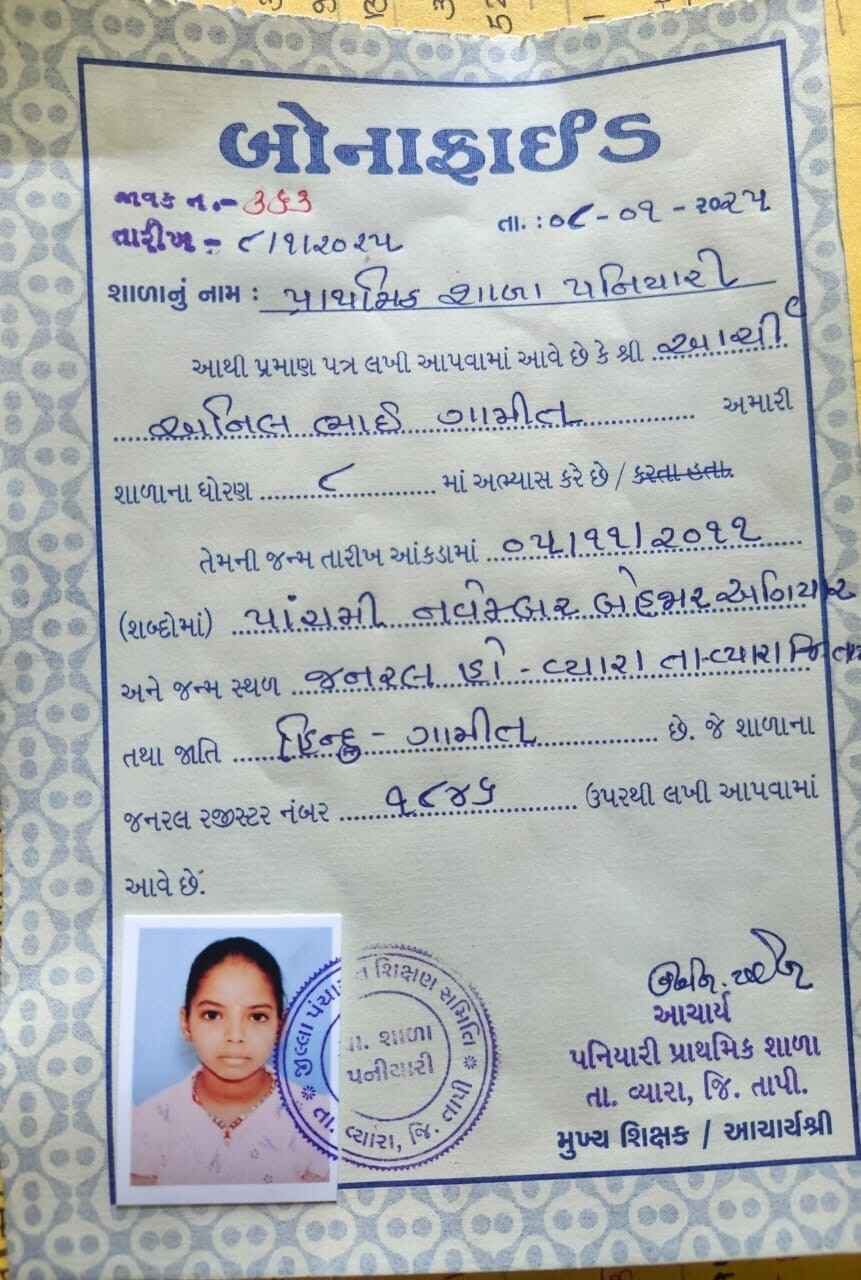 બોનાફાઈડ
જાવક નં.- ૩૬૩
તારીખ - ૮/૧/૨૦૨૫
તા. : ૦૮-૦૧-૨૦૨૫
શાળાનું નામ : પ્રાથમિક શાળા પનિયારી
આથી પ્રમાણ પત્ર લખી આપવામાં આવે છે કે શ્રી
અનિલભાઈ ગામીત અમારી
શાળાના ધોરણ ૮ માં અભ્યાસ કરે છે / કરતા હતા.
તેમની જન્મ તારીખ આંકડામાં ૦૫/૧૧/૨૦૧૧
(શબ્દોમાં) પાંચમી નવેમ્બર બેહજાર અગિયાર
અને જન્મ સ્થળ જનરલ હો - વ્યારા તા-વ્યારા જિ તાપી
તથા જાતિ હિન્દુ - ગામીત છે. જે શાળાના
જનરલ રજીસ્ટર નંબર ૧૮૪૬ ઉપરથી લખી આપવામાં
આવે છે.
જીલ્લા પંચાયત શિક્ષણ સમિતિ
પ્રા. શાળા
પનીયારી
તા. વ્યારા, જિ. તાપી
આચાર્ય
પનિયારી પ્રાથમિક શાળા
તા. વ્યારા, જિ. તાપી.
મુખ્ય શિક્ષક / આચાર્યશ્રી